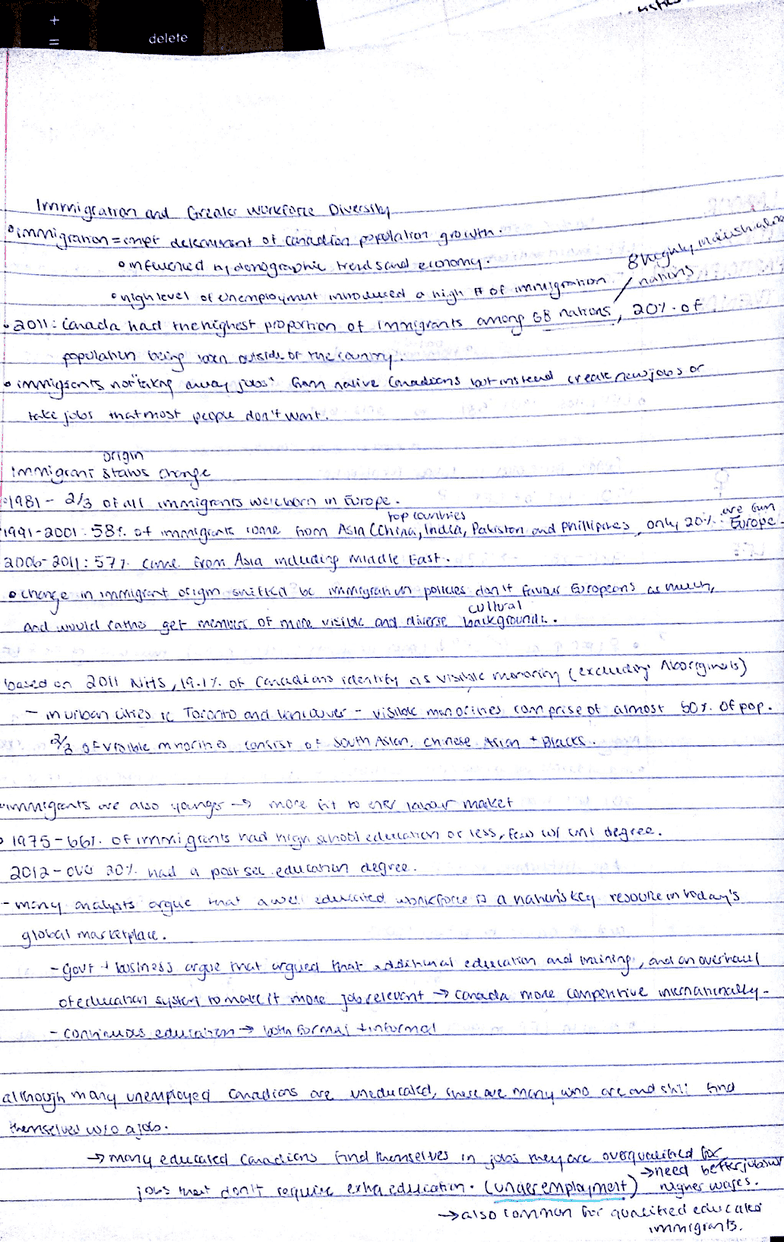 +
=
delete
Immigration and Greater Workforce Diversity
immigration = impt determinant of canadian population growth.
influenced by demographic trends and economy.
high level of unemployment introduced a high # of immigration
8 highly industrialized nations
2011: Canada had the highest proportion of immigrants among G8 nations, 20% of
population being born outside of the country.
immigrants not "taking away jobs" from native Canadians but instead create new jobs or
take jobs that most people don't want.
origin
Immigrant status change
1981 - 2/3 of all immigrants were born in Europe.
top countries
1991-2001: 58% of immigrants come from Asia (China, India, Pakistan and Phillipines, only 20% are from Europe.
2006-2011: 57% came from Asia including Middle East.
change in immigrant origin shifted bc immigration policies don't favour Europeans as much,
cultural
and would rather get members of more visible and diverse backgrounds.
based on 2011 NHS, 19.1% of Canadians identify as visible minority (excluding Aboriginals)
- in urban cities ie Toronto and Vancouver - visible minorities comprise of almost 50% of pop.
2/3 of visible minorities consist of South Asian, Chinese Asian + Blacks.
immigrants are also younger → more fit to enter labour market
1975-66% of immigrants had high school education or less, few w/ uni degree.
2012-over 30% had a post sec education degree.
- many analysts argue that a well educated workforce is a nation's key resource in today's
global marketplace.
- Govt + business argue that argued that additional education and training, and an overhaul
of education system to make it more job relevant → Canada more competitive internationally.
- continuous education → both formal + informal
although many unemployed Canadians are uneducated, there are many who are and still find
themselves w/o a job.
→ many educated Canadians find themselves in jobs they are overqualified for
jobs that don't require extra education. (underemployment) → need better jobs w/ higher wages.
→ also common for qualified educated
immigrants.